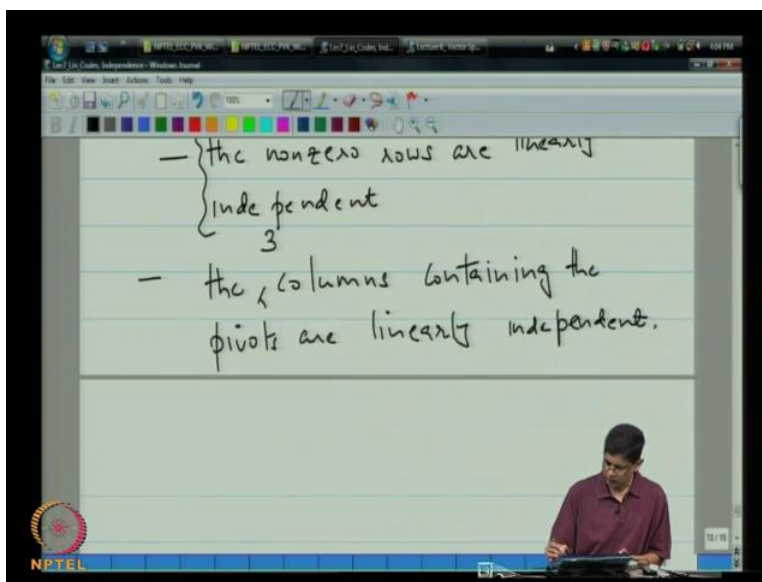 Lec7_Lin_Codes, Independence - Windows Journal
File Edit View Insert Actions Tools Help
100%
B I
— the nonzero rows are linearly
independent
3
— the columns containing the
pivots are linearly independent.
NPTEL